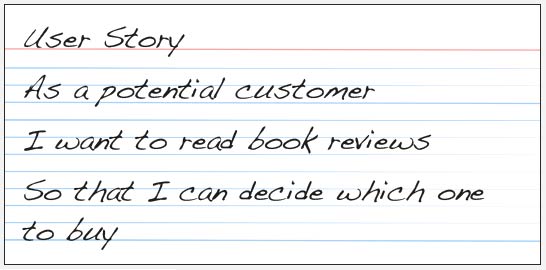 User Story
As a potential customer
I want to read book reviews
So that I can decide which one
to buy